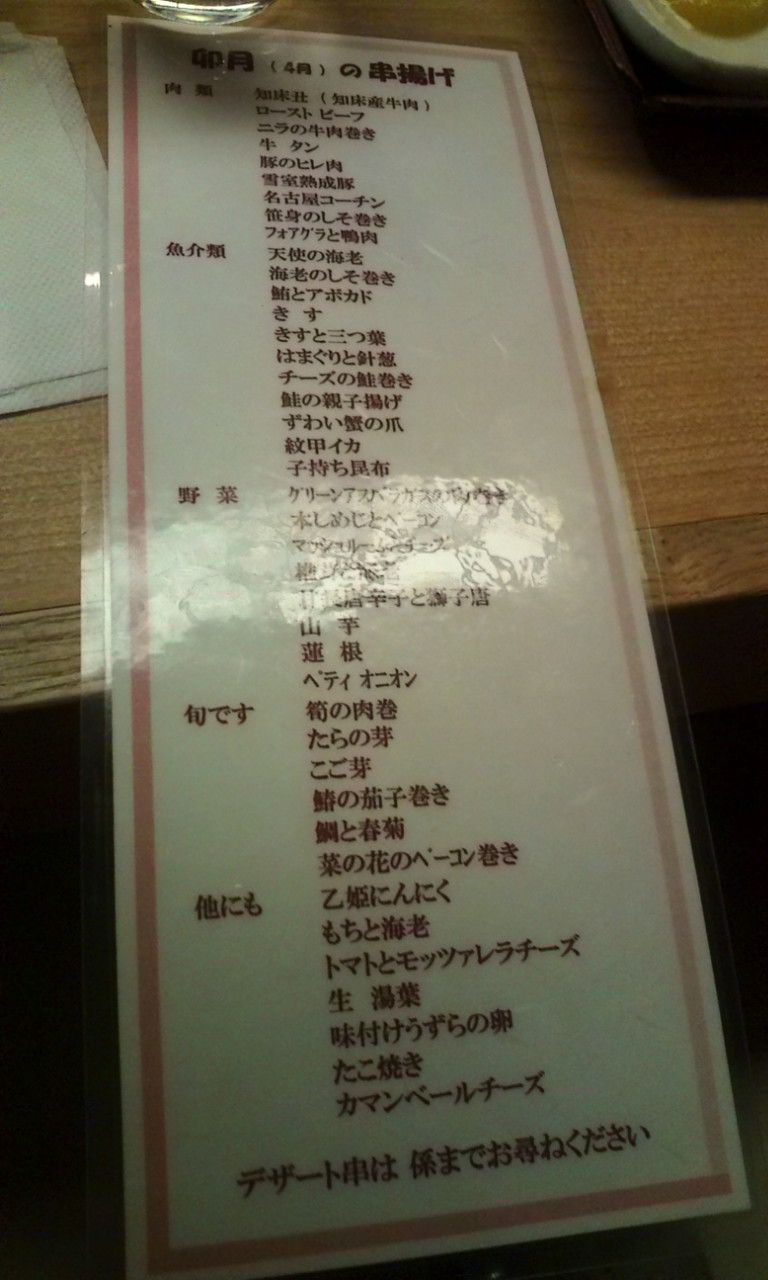 卯月（4月）の串揚げ
肉類 知床丑（知床産牛肉）
ローストビーフ
ニラの牛肉巻き
牛タン
豚のヒレ肉
雪室熟成豚
名古屋コーチン
笹身のしそ巻き
フォアグラと鴨肉
魚介類 天使の海老
海老のしそ巻き
鮪とアボカド
きす
きすと三つ葉
はまぐりと針葱
チーズの鮭巻き
鮭の親子揚げ
ずわい蟹の爪
紋甲イカ
子持ち昆布
野菜 グリーンアスパラガスの巻き
本しめじとベーコン
マッシュルームとチーズ
唐辛子と獅子唐
山芋
蓮根
ペティオニオン
旬です 筍の肉巻
たらの芽
こご芽
鰆の茄子巻き
鯛と春菊
菜の花のベーコン巻き
他にも 乙姫にんにく
もちと海老
トマトとモッツァレラチーズ
生湯葉
味付けうずらの卵
たこ焼き
カマンベールチーズ
デザート串は 係までお尋ねください